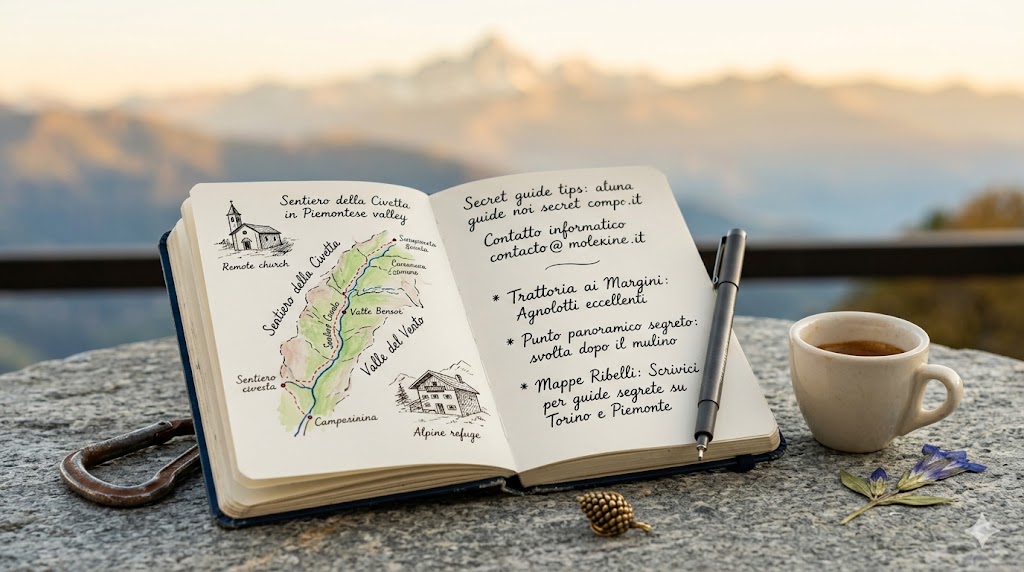 Sentiero della Civetta
in Piemontese valley
Remote church
Sentiero della Civetta
Valle Bensot
Valle del Vento
Sentiero
civesta
Camperinina
Alpine refuge
Secret guide tips: atuna
guide noi secret compc.it
Contatto informatico
contacto@molekine.it
* Trattoria ai Margini:
Agnolotti eccellenti
* Punto panoramico segreto:
svolta dopo il mulino
* Mappe Ribelli: Scrivici
per guide segrete su
Torino e Piemonte